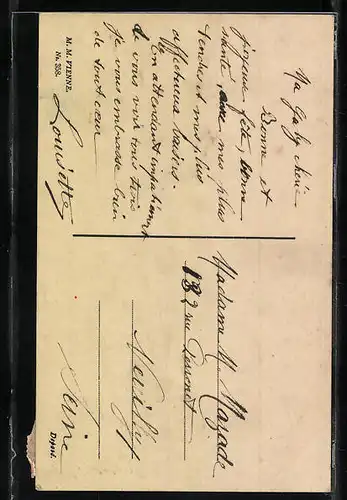 Ma Gaby chérie
Bonne et
joyeuse fête, bonne
santé, avec mes plus
tendres et mes plus
affectueux baisers.
En attendant impatiemment
de vous voir tous trois
je vous embrasse bien
de tout cœur
Louisette
M. M. VIENNE.
Nr. 398.
Madame M.
182 rue
Neuilly
Seine
Dépost.